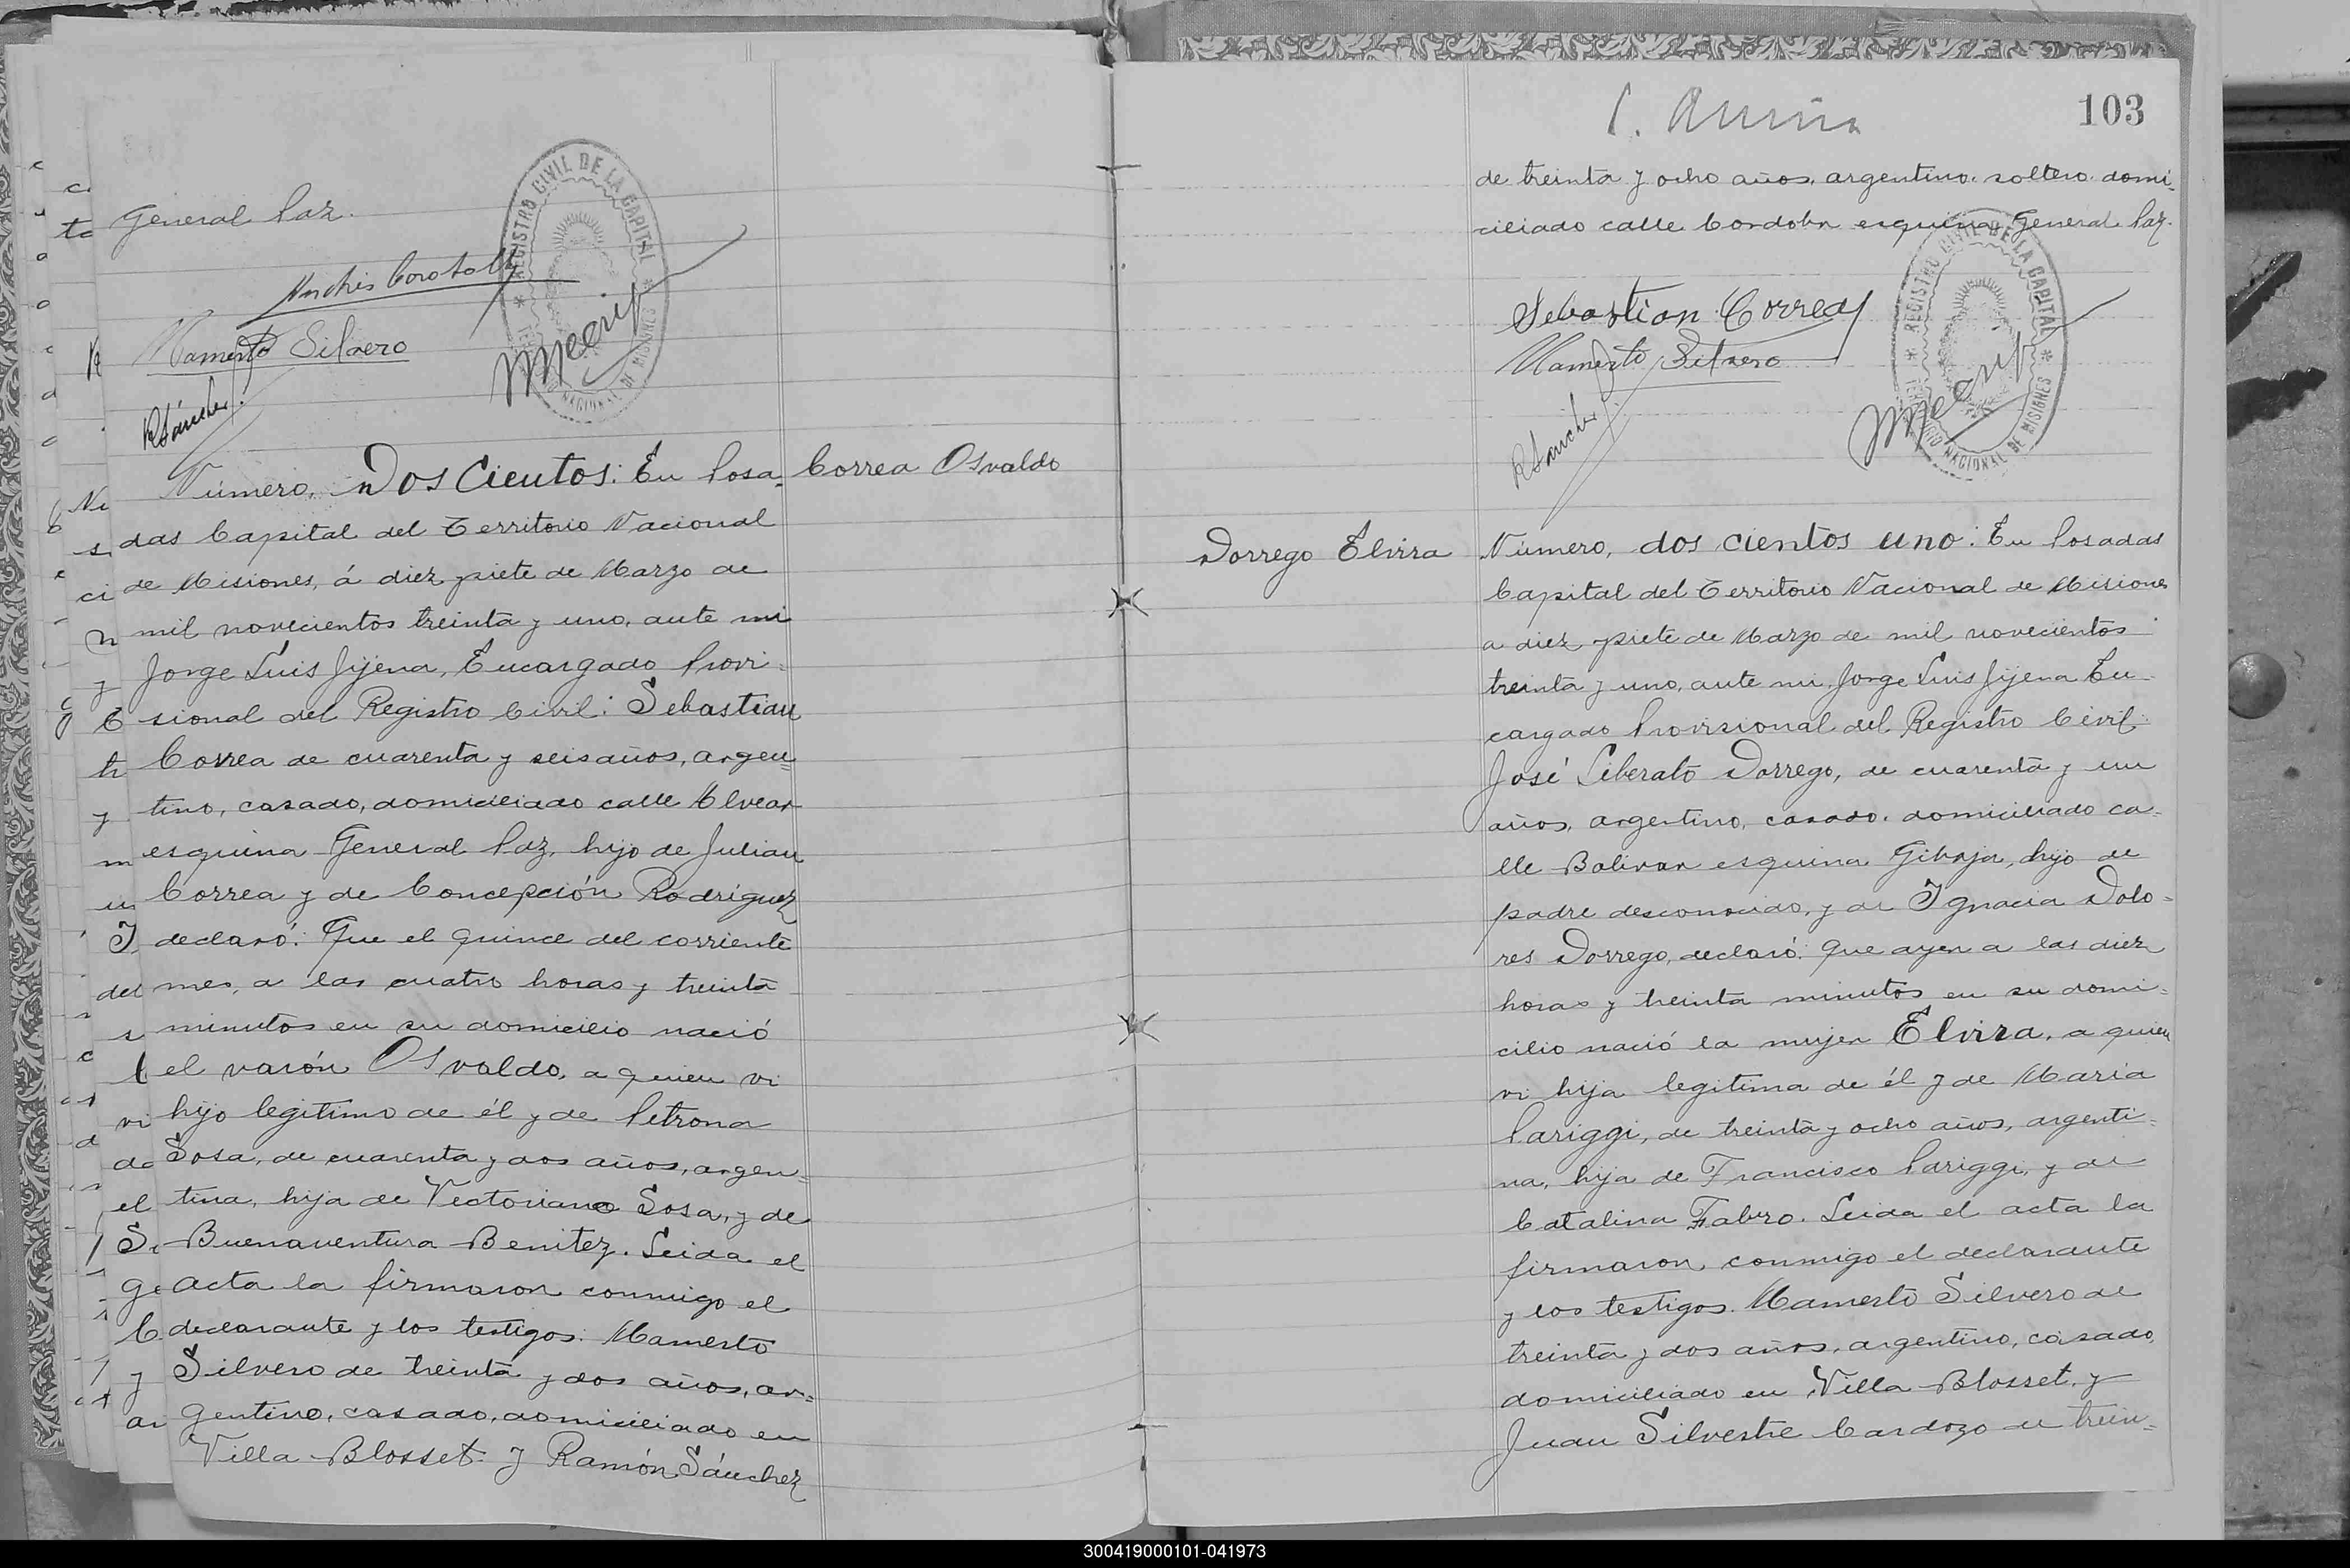 General Paz.
Mamerto Silvero
RSánchez
REGISTRO CIVIL DE LA CAPITAL
TERRITORIO NACIONAL DE MISIONES
Número, Dos Cientos: En Posa=
Correa Osvaldo
das Capital del Territorio Nacional
de Misiones, á diez y siete de Marzo de
mil novecientos treinta y uno, ante mi
Jorge Luis Jijena, Encargado Provi=
sional del Registro Civil: Sebastian
Correa de cuarenta y seis años, argen=
tino, casado, domiciliado calle Alvear
esquina General Paz, hijo de Julian
Correa y de Concepción Rodriguez
declaró: Que el quince del corriente
mes, a las cuatro horas y treinta
minutos en su domicilio nació
el varón Osvaldo, a quien vi
hijo legitimo de él y de Petrona
Sosa, de cuarenta y dos años, argen=
tina, hija de Victoriano Sosa, y de
Buenaventura Benitez. Leida el
acta la firmaron conmigo el
declarante y los testigos: Mamerto
Silvero de treinta y dos años, ar=
gentino, casado, domiciliado en
Villa Blosset y Ramón Sánchez
103
de treinta y ocho años, argentino, soltero, domi=
ciliado calle Cordoba esquina General Paz.
Sebastian Correa
Mamerto Silvero
RSanchez
REGISTRO CIVIL DE LA CAPITAL
TERRITORIO NACIONAL DE MISIONES
Dorrego Elvira
Número, dos cientos uno: En Posadas
Capital del Territorio Nacional de Misiones
a diez y siete de Marzo de mil novecientos
treinta y uno, ante mi, Jorge Luis Jijena En=
cargado Provisional del Registro Civil:
José Liberato Dorrego, de cuarenta y un
años, argentino, casado, domiciliado ca=
lle Bolivar esquina Gibaja, hijo de
padre desconocido, y de Ignacia Dolo=
res Dorrego, declaró: Que ayer a las diez
horas y treinta minutos en su domi=
cilio nació la mujer Elvira, a quien
vi hija legitima de él y de Maria
Pariggi, de treinta y ocho años, argenti=
na, hija de Francisco Pariggi, y de
Catalina Fabro. Leida el acta la
firmaron, conmigo el declarante
y los testigos. Mamerto Silvero de
treinta y dos años, argentino, casado,
domiciliado en Villa Blosset, y
Juan Silvestre Cardozo de trein=
300419000101-041973